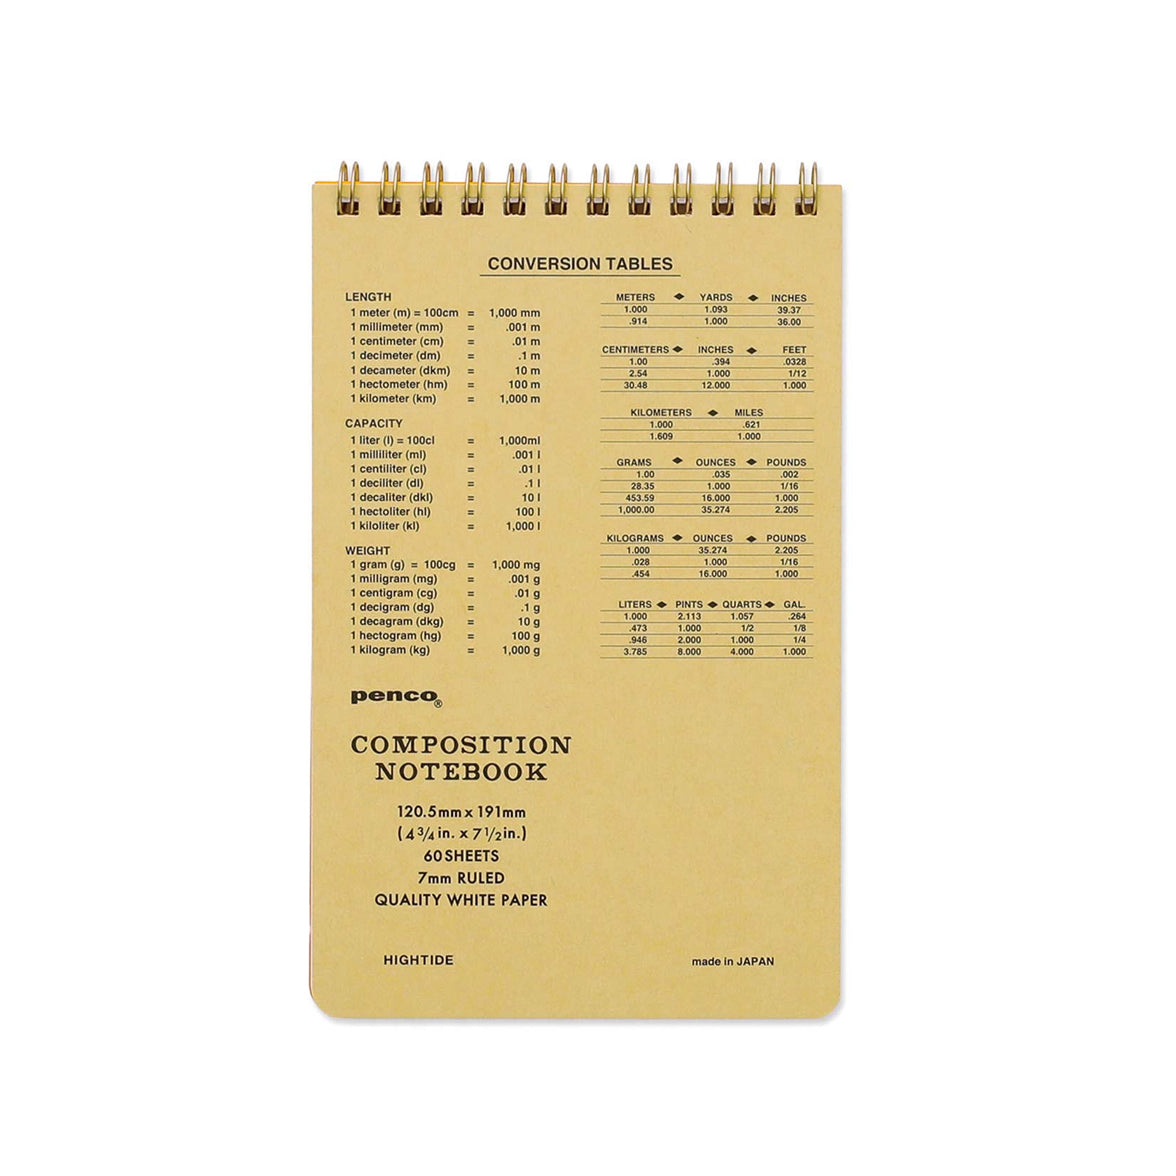 CONVERSION TABLES
LENGTH
1 meter (m) = 100cm = 1,000 mm
1 millimeter (mm) = .001 m
1 centimeter (cm) = .01 m
1 decimeter (dm) = .1 m
1 decameter (dkm) = 10 m
1 hectometer (hm) = 100 m
1 kilometer (km) = 1,000 m
CAPACITY
1 liter (l) = 100cl = 1,000ml
1 milliliter (ml) = .001 l
1 centiliter (cl) = .01 l
1 deciliter (dl) = .1 l
1 decaliter (dkl) = 10 l
1 hectoliter (hl) = 100 l
1 kiloliter (kl) = 1,000 l
WEIGHT
1 gram (g) = 100cg = 1,000 mg
1 milligram (mg) = .001 g
1 centigram (cg) = .01 g
1 decigram (dg) = .1 g
1 decagram (dkg) = 10 g
1 hectogram (hg) = 100 g
1 kilogram (kg) = 1,000 g
METERS ◆ YARDS ◆ INCHES
1.000 1.093 39.37
.914 1.000 36.00
CENTIMETERS ◆ INCHES ◆ FEET
1.00 .394 .0328
2.54 1.000 1/12
30.48 12.000 1.000
KILOMETERS ◆ MILES
1.000 .621
1.609 1.000
GRAMS ◆ OUNCES ◆ POUNDS
1.00 .035 .002
28.35 1.000 1/16
453.59 16.000 1.000
1,000.00 35.274 2.205
KILOGRAMS ◆ OUNCES ◆ POUNDS
1.000 35.274 2.205
.028 1.000 1/16
.454 16.000 1.000
LITERS ◆ PINTS ◆ QUARTS ◆ GAL.
1.000 2.113 1.057 .264
.473 1.000 1/2 1/8
.946 2.000 1.000 1/4
3.785 8.000 4.000 1.000
penco®
COMPOSITION
NOTEBOOK
120.5mm x 191mm
(4 3/4 in. x 7 1/2 in.)
60 SHEETS
7mm RULED
QUALITY WHITE PAPER
HIGHTIDE
made in JAPAN